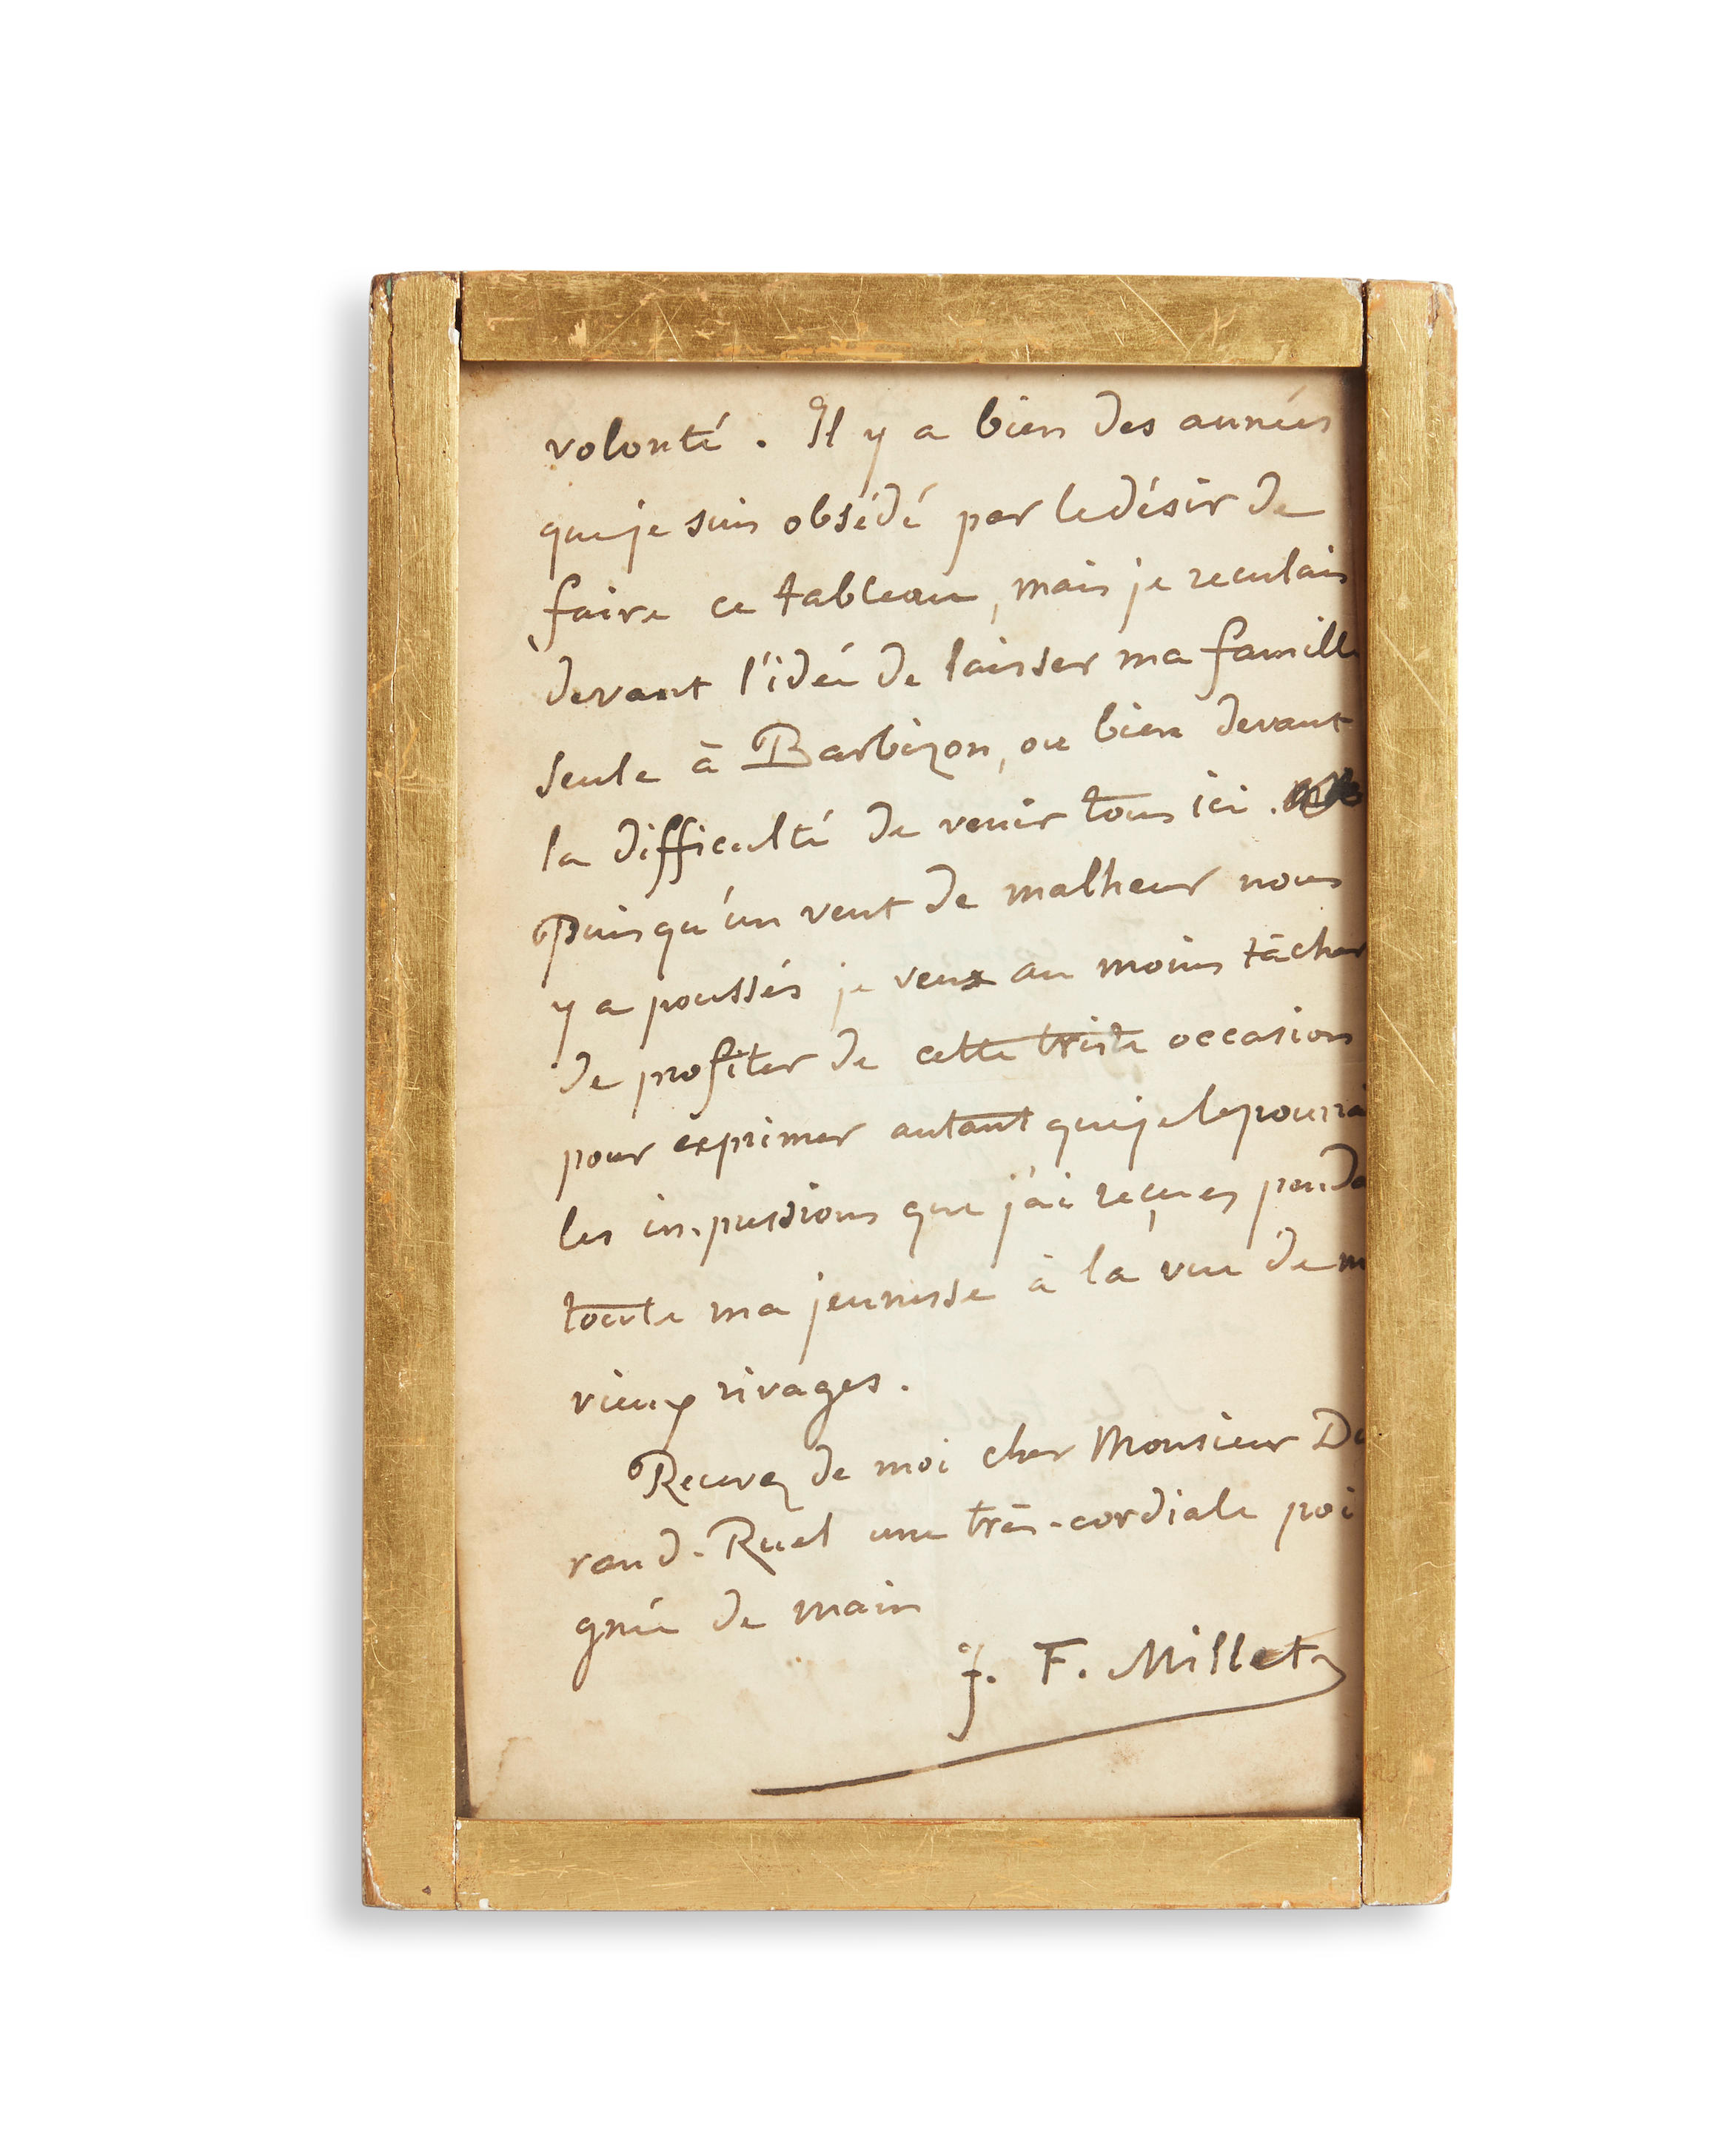 volonté. Il y a bien des années
que je suis obsédé par le désir de
faire ce tableau, mais je reculais
devant l'idée de laisser ma famille
seule à Barbizon, ou bien devant
la difficulté de venir tous ici.
Puisqu'un vent de malheur nous
y a poussés je veux au moins tâcher
de profiter de cette triste occasion
pour exprimer autant que je le pourrai
les impressions que j'ai reçues penda
toute ma jeunesse à la vue de m
vieux rivages.
Recevez de moi cher Monsieur Du
rand-Ruel une très-cordiale poi
gnée de main
J. F. Millet